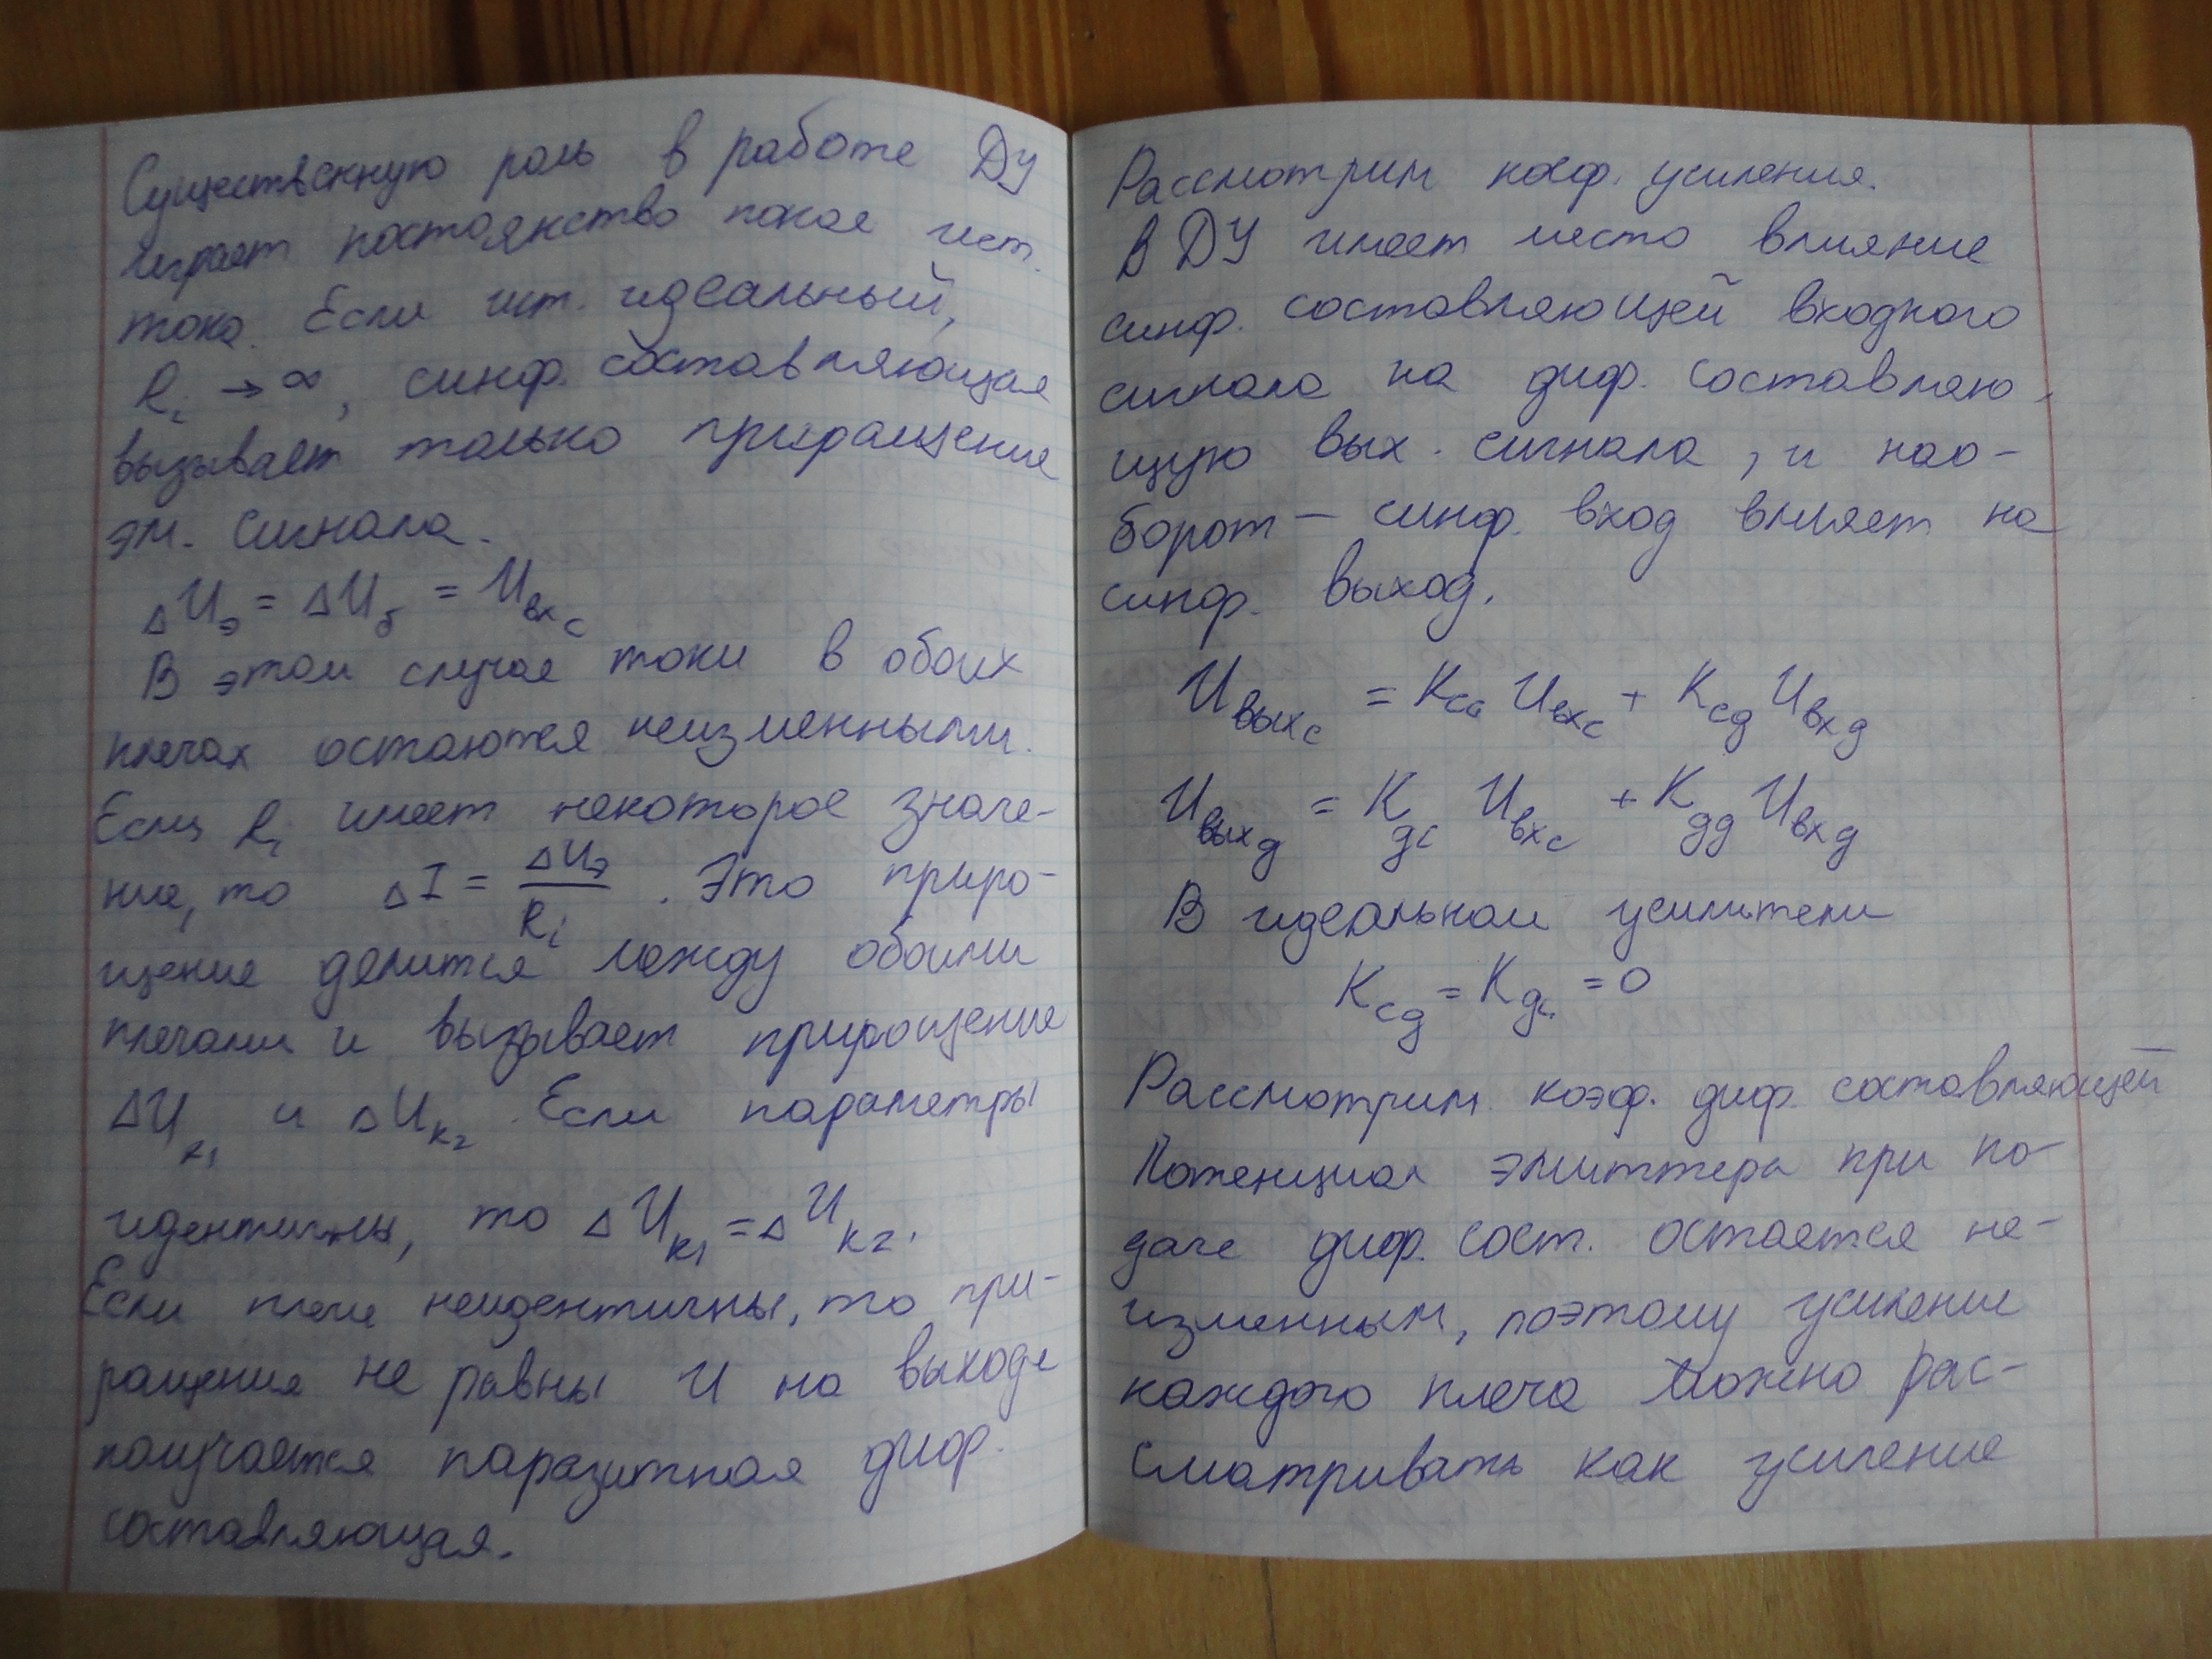 Существенную роль в работе ДУ
играет постоянство ист.
тока. Если ист. идеальный,
Ri → ∞, синф. составляющая
вызывает только приращение
эм. сигнала.
ΔUэ = ΔUб = Uвхс
В этом случае токи в обоих
плечах остаются неизменными.
Если Ri имеет некоторое значе-
ние, то ΔI = ΔUэ/Ri. Это прира-
щение делится между обоими
плечами и вызывает приращение
ΔUк1 и ΔUк2. Если параметры
идентичны, то ΔUк1 = ΔUк2.
Если плечи неидентичны, то при-
ращения не равны и на выходе
получается паразитная диф.
составляющая.
Рассмотрим коэф. усиления.
В ДУ имеет место влияние
синф. составляющей входного
сигнала на диф. составляю
щую вых. сигнала, и нао-
борот – синф. вход влияет на
синф. выход.
Uвыхс = Kсс Uвхс + Kсд Uвхд
Uвыхд = Kдс Uвхс + Kдд Uвхд
В идеальном усилители
Kсд = Kдс = 0
Рассмотрим коэф. диф. составляющей
Потенциал эмиттера при по-
даче диф. сост. остается не-
изменным, поэтому усиление
каждого плеча можно рас-
сматривать как усиление